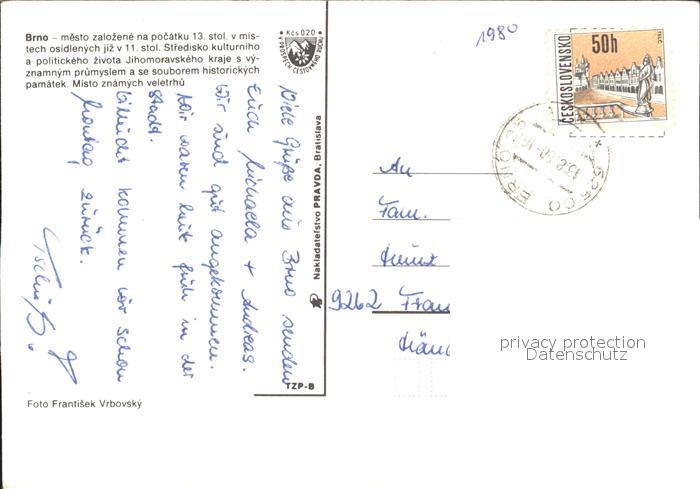 Brno – město založené na počátku 13. stol. v mis-
tech osídlených již v 11. stol. Středisko kulturního
a politického života Jihomoravského kraje s vý-
znamným průmyslem a se souborem historických
památek. Místo známých veletrhů
Kčs 0,20
Viele Grüße aus Brno senden
Euch Michaela + Andreas.
Wir sind gut angekommen.
Wir waren heute früh in der
Stadt.
Vielleicht kommen wir schon
Montag zurück.
Tschüß
Foto František Vrbovský
Nakladateľstvo PRAVDA, Bratislava
TZP-B
1980
ČESKOSLOVENSKO
50h
TELČ
BRNO
An
Fam.
9262 Fran
privacy protection
Datenschutz